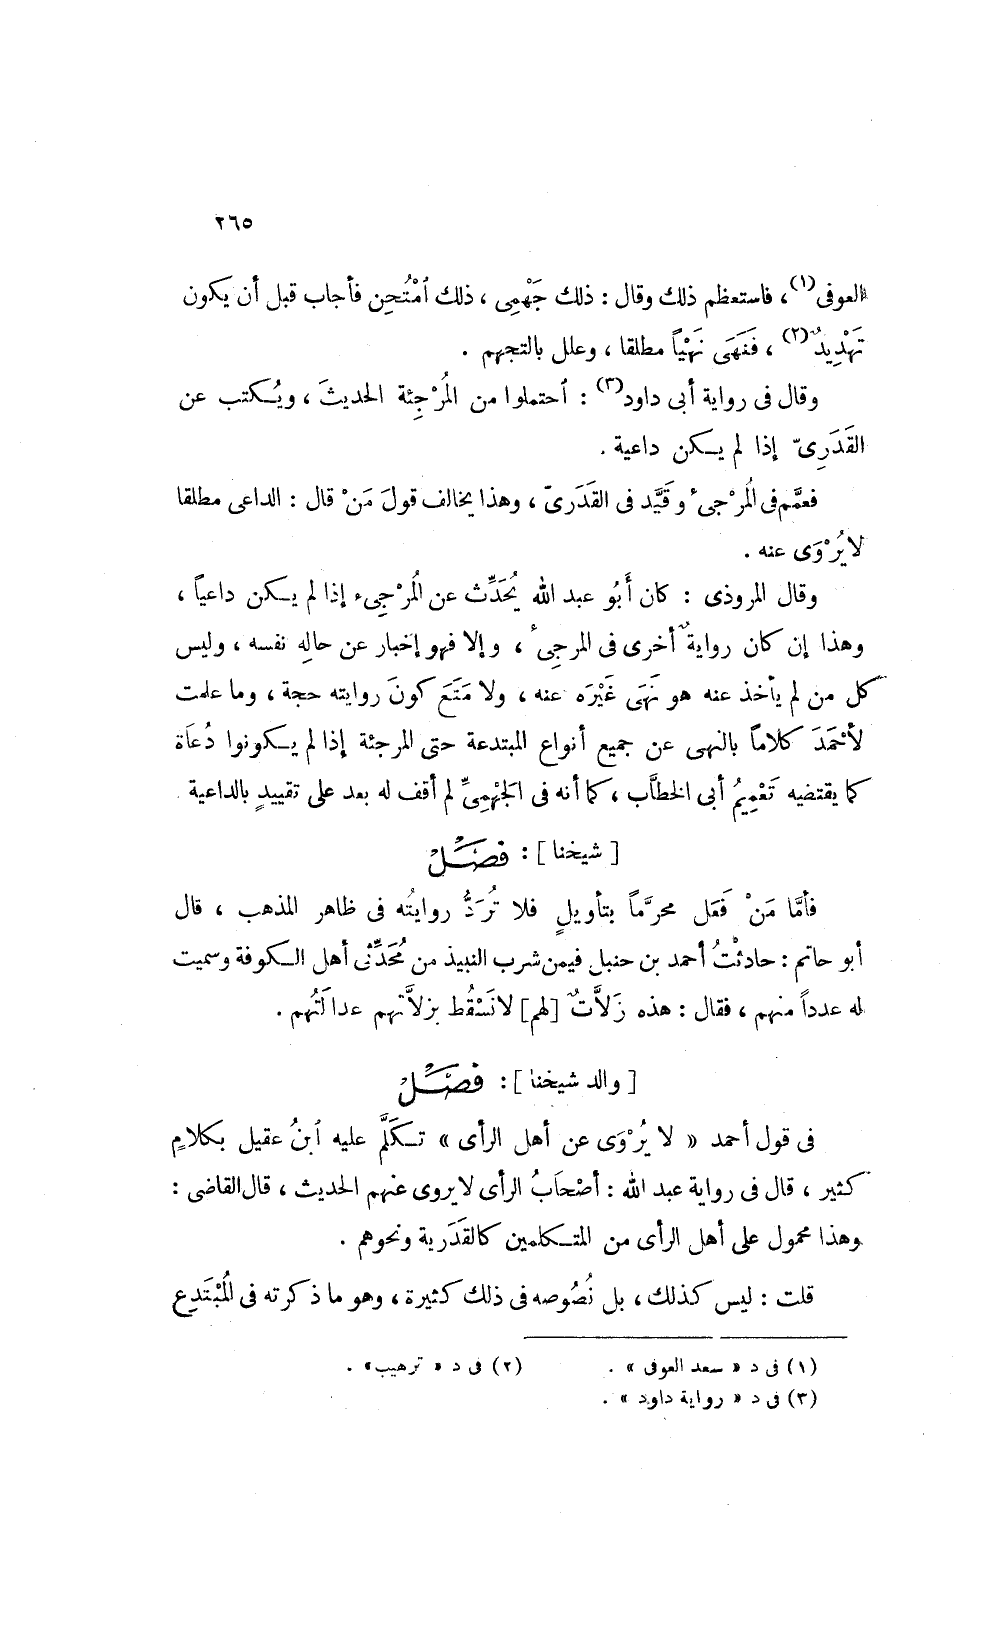 ٢٦٥
العوفى(١)، فاستعظم ذلك وقال : ذلك جَهْمِى ، ذلك ٱمْتُحِن فأجاب قبل أن يكون
تَهْدِيدٌ(٢) ، فَنَهَى نَهْيًا مطلقا ، وعلل بالتجهم .
وقال فى رواية أبى داود(٣) : ٱحتملوا من المُرْجِئة الحديثَ ، ويُكتب عن
القَدَرِىّ إذا لم يكن داعية .
فعمَّم فى المُرْجىُ وقَيَّد فى القَدَرىّ ، وهذا يخالف قولَ مَنْ قال : الداعى مطلقا
لا يُرْوَى عنه .
وقال المروذى : كان أَبُو عبد الله يُحَدِّث عن المُرْجِىء إذا لم يكن داعياً ،
وهذا إن كان روايةٌ أخرى فى المرجىُ ، وإلا فهو إخبار عن حاله نفسه ، وليس
كل من لم يأخذ عنه هو نَهَى غَيْرَه عنه ، ولا مَنَعَ كونَ روايته حجة ، وما علمت
لأحْمَدَ كلاماً بالنهى عن جميع أنواع المبتدعة حتى المرجئة إذا لم يكونوا دُعاَة
كما يقتضيه تَعْمِيمُ أبى الخطَّاب ، كما أنه فى الجَهْمِىِّ لم أقف له بعد على تقييدٍ بالداعية .
[ شيخنا ] : فَصَــْـل
فأمَّا مَنْ فَعَل محرَّماً بتأويلٍ فلا تُرَدُّ روايتُه فى ظاهر المذهب ، قال
أبو حاتم : حادثْتُ أحمد بن حنبل فيمن شرب النبيذ من مُحَدِّثى أهل الكوفة وسميت
له عدداً منهم ، فقال : هذه زَلاَّتٌ [لهم] لا نَسْقُط بزلاَّتهم عدالَتُهم .
[ والد شيخنا ] : فَصَــْـل
فى قول أحمد « لا يُرْوَى عن أهل الرأى » تكَلَّمَ عليه ٱبنُ عقيل بكلامٍ
كثير ، قال فى رواية عبد الله : أصْحاَبُ الرأى لا يروى عنهم الحديث ، قال القاضى :
وهذا محمول على أهل الرأى من المتكلمين كالقَدَرية ونحوهم .
قلت : ليس كذلك ، بل نُصُوصه فى ذلك كثيرة ، وهو ما ذكرته فى المُبْتَدِع
(١) فى د « سعد العوفى » . (٢) فى د « ترهيب» .
(٣) فى د « رواية داود » .